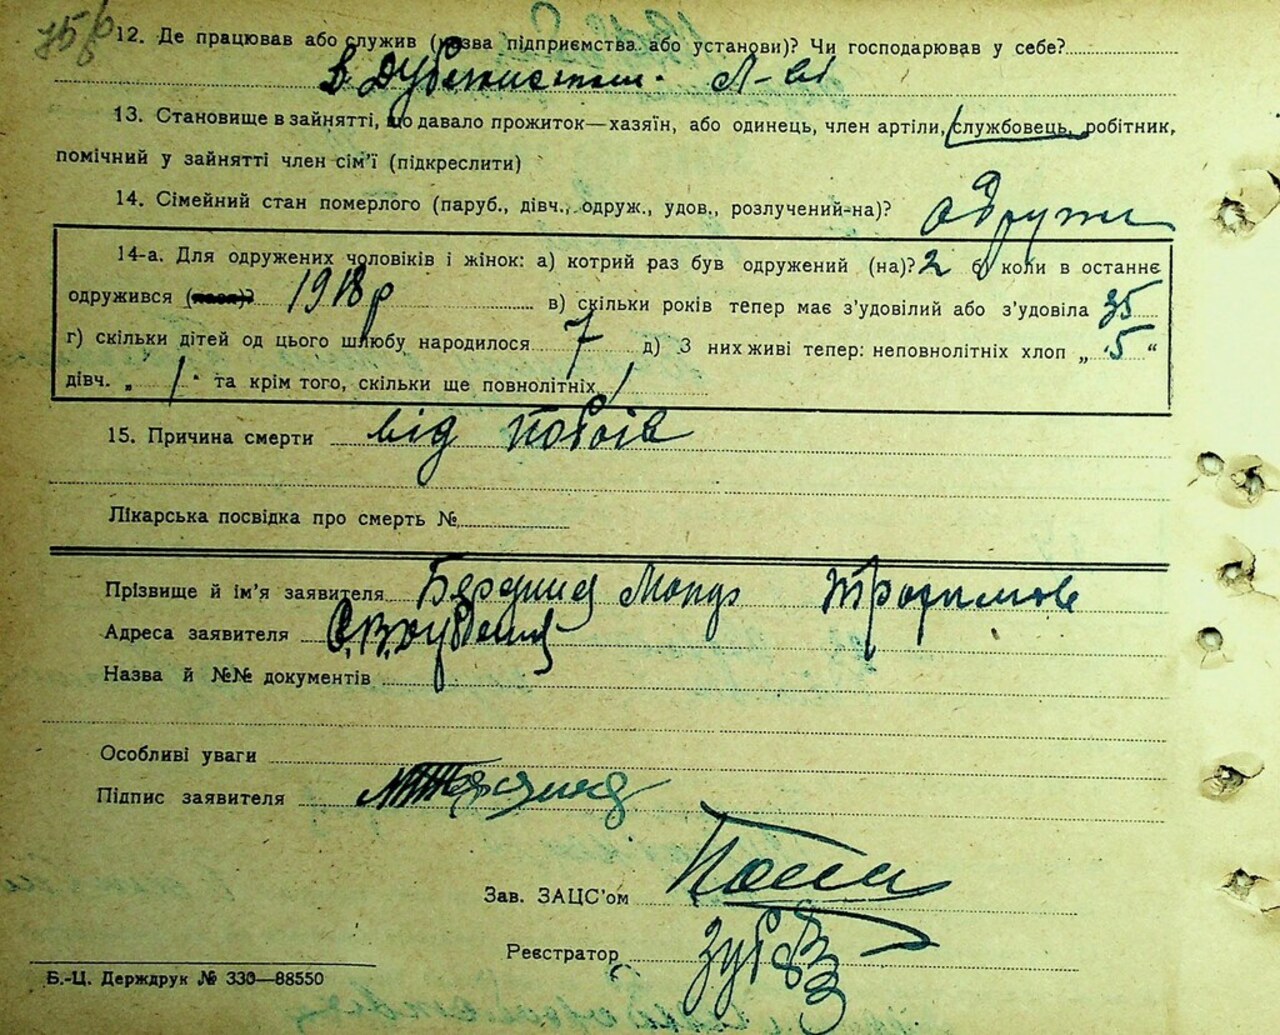 12. Де працював або служив (назва підприємства або установи)? Чи господарював у себе?
в
13. Становище в зайнятті, що давало прожиток—хазяїн, або одинець, член артілі, службовець, робітник,
помічний у зайнятті член сім'ї (підкреслити)
14. Сімейний стан померлого (паруб., дівч., одруж., удов., розлучений-на)? одружен
14-а. Для одружених чоловіків і жінок: а) котрий раз був одружений (на)? 2 б) коли в останнє
одружився 1918 р в) скільки років тепер має з'удовілий або з'удовіла 35
г) скільки дітей од цього шлюбу народилося 7 д) З них живі тепер: неповнолітніх хлоп „ 5 “
дівч. „ 1 “ та крім того, скільки ще повнолітніх 1
15. Причина смерти від побоїв
Лікарська посвідка про смерть №
Прізвище й ім'я заявителя
Адреса заявителя
Назва й №№ документів
Особливі уваги
Підпис заявителя
Зав. ЗАЦС'ом
Реєстратор
Б.-Ц. Держдрук № 330—88550